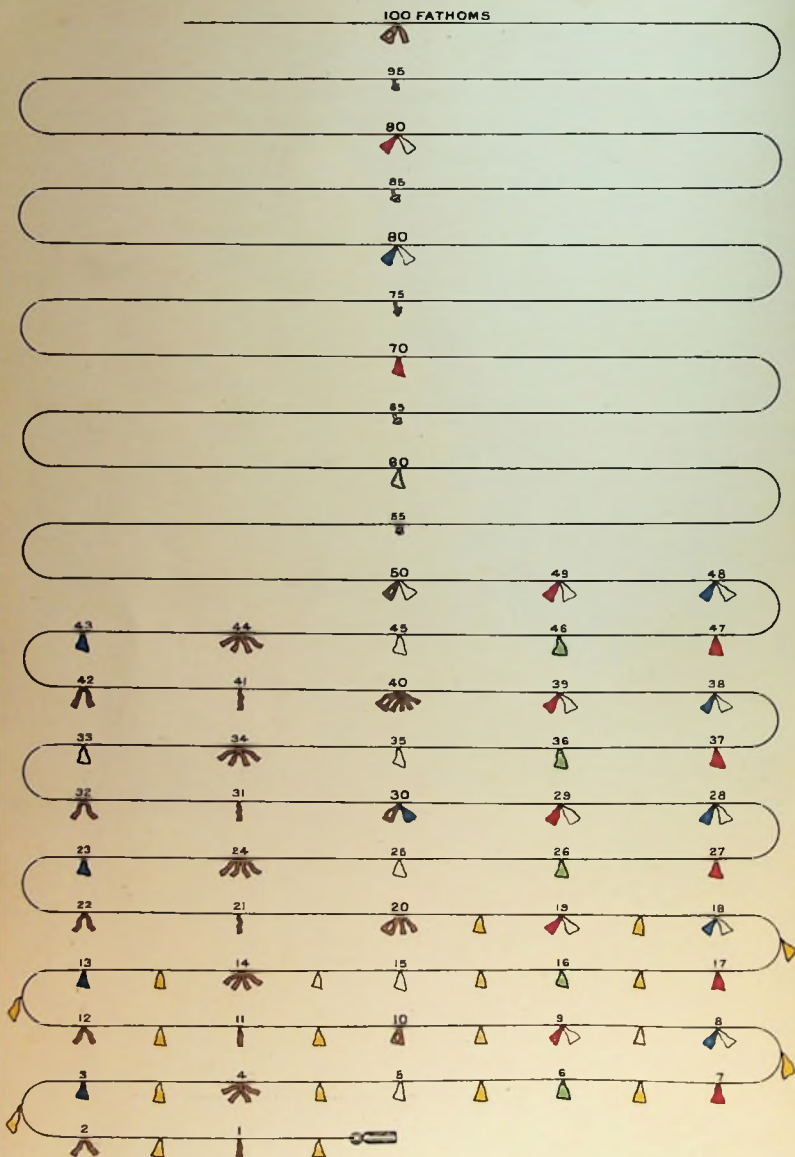 100 FATHOMS
95
90
85
80
75
70
65
60
55
50 49 48
43 44 45 46 47
42 41 40 39 38
33 34 35 36 37
32 31 30 29 28
23 24 25 26 27
22 21 20 19 18
13 14 15 16 17
12 11 10 9 8
3 4 5 6 7
2 1